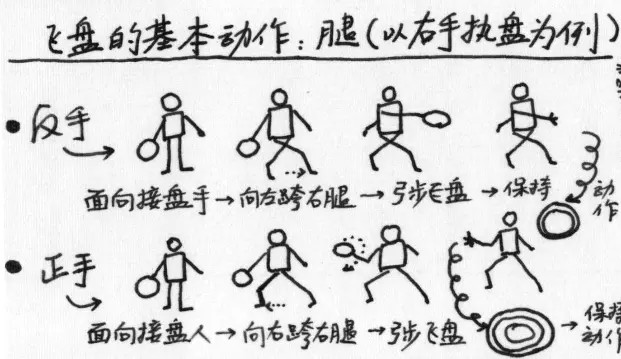 飞盘的基本动作：腿（以右手执盘为例）
• 反手
面向接盘手→向左跨右腿→引步飞盘→保持动作
• 正手
面向接盘人→向右跨右腿→引步飞盘→保持动作